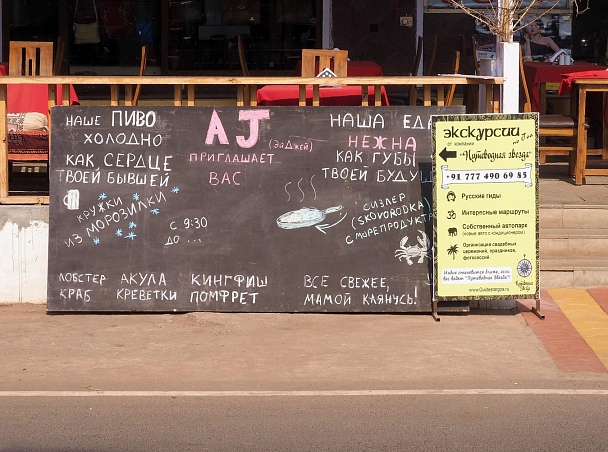 НАШЕ ПИВО
ХОЛОДНО
КАК СЕРДЦЕ
ТВОЕЙ БЫВШЕЙ
КРУЖКИ
ИЗ МОРОЗИЛКИ
AJ
(ЭйДжей)
ПРИГЛАШАЕТ
ВАС
С 9:30
ДО ...
НАША ЕДА
НЕЖНА
КАК ГУБЫ
ТВОЕЙ БУДУЩ
СИЗЛЕР
(SKOVORODKA)
С МОРЕПРОДУКТА
ЛОБСТЕР АКУЛА КИНГФИШ
КРАБ КРЕВЕТКИ ПОМФРЕТ
ВСЕ СВЕЖЕЕ,
МАМОЙ КЛЯНУСЬ!
экскурсии по Гоа
от компании
"Путеводная звезда"
+91 777 490 69 85
Русские гиды
Интересные маршруты
Собственный автопарк
(новые авто с кондиционером)
Организация свадебных
церемоний, праздников,
фотосессий
Индия становится ближе, если
Вас ведет "Путеводная Звезда"!
Путеводная
Звезда
www.Guidestargoa.ru